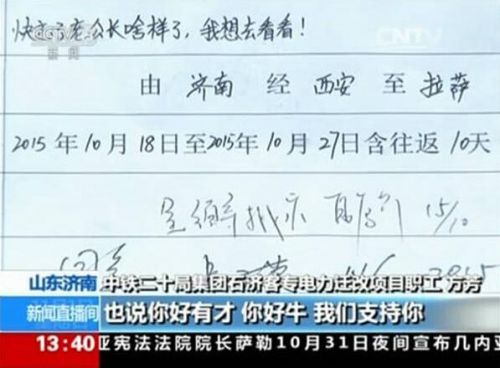 CCTV 13 新闻
CNTV
快忘了老公长啥样了,我想去看看!
由 济南 经 西安 至 拉萨
2015年10月18日至2015年10月27日含往返10天
15/10
山东济南
中铁二十局集团石济客专电力迁改项目职工 万芳
新闻直播间
也说你好有才 你好牛 我们支持你
13:40
亚宪法法院院长萨勒10月31日夜间宣布几内亚